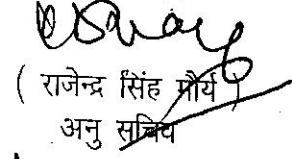 ( राजेन्द्र सिंह मौर्य )
अनु सचिव